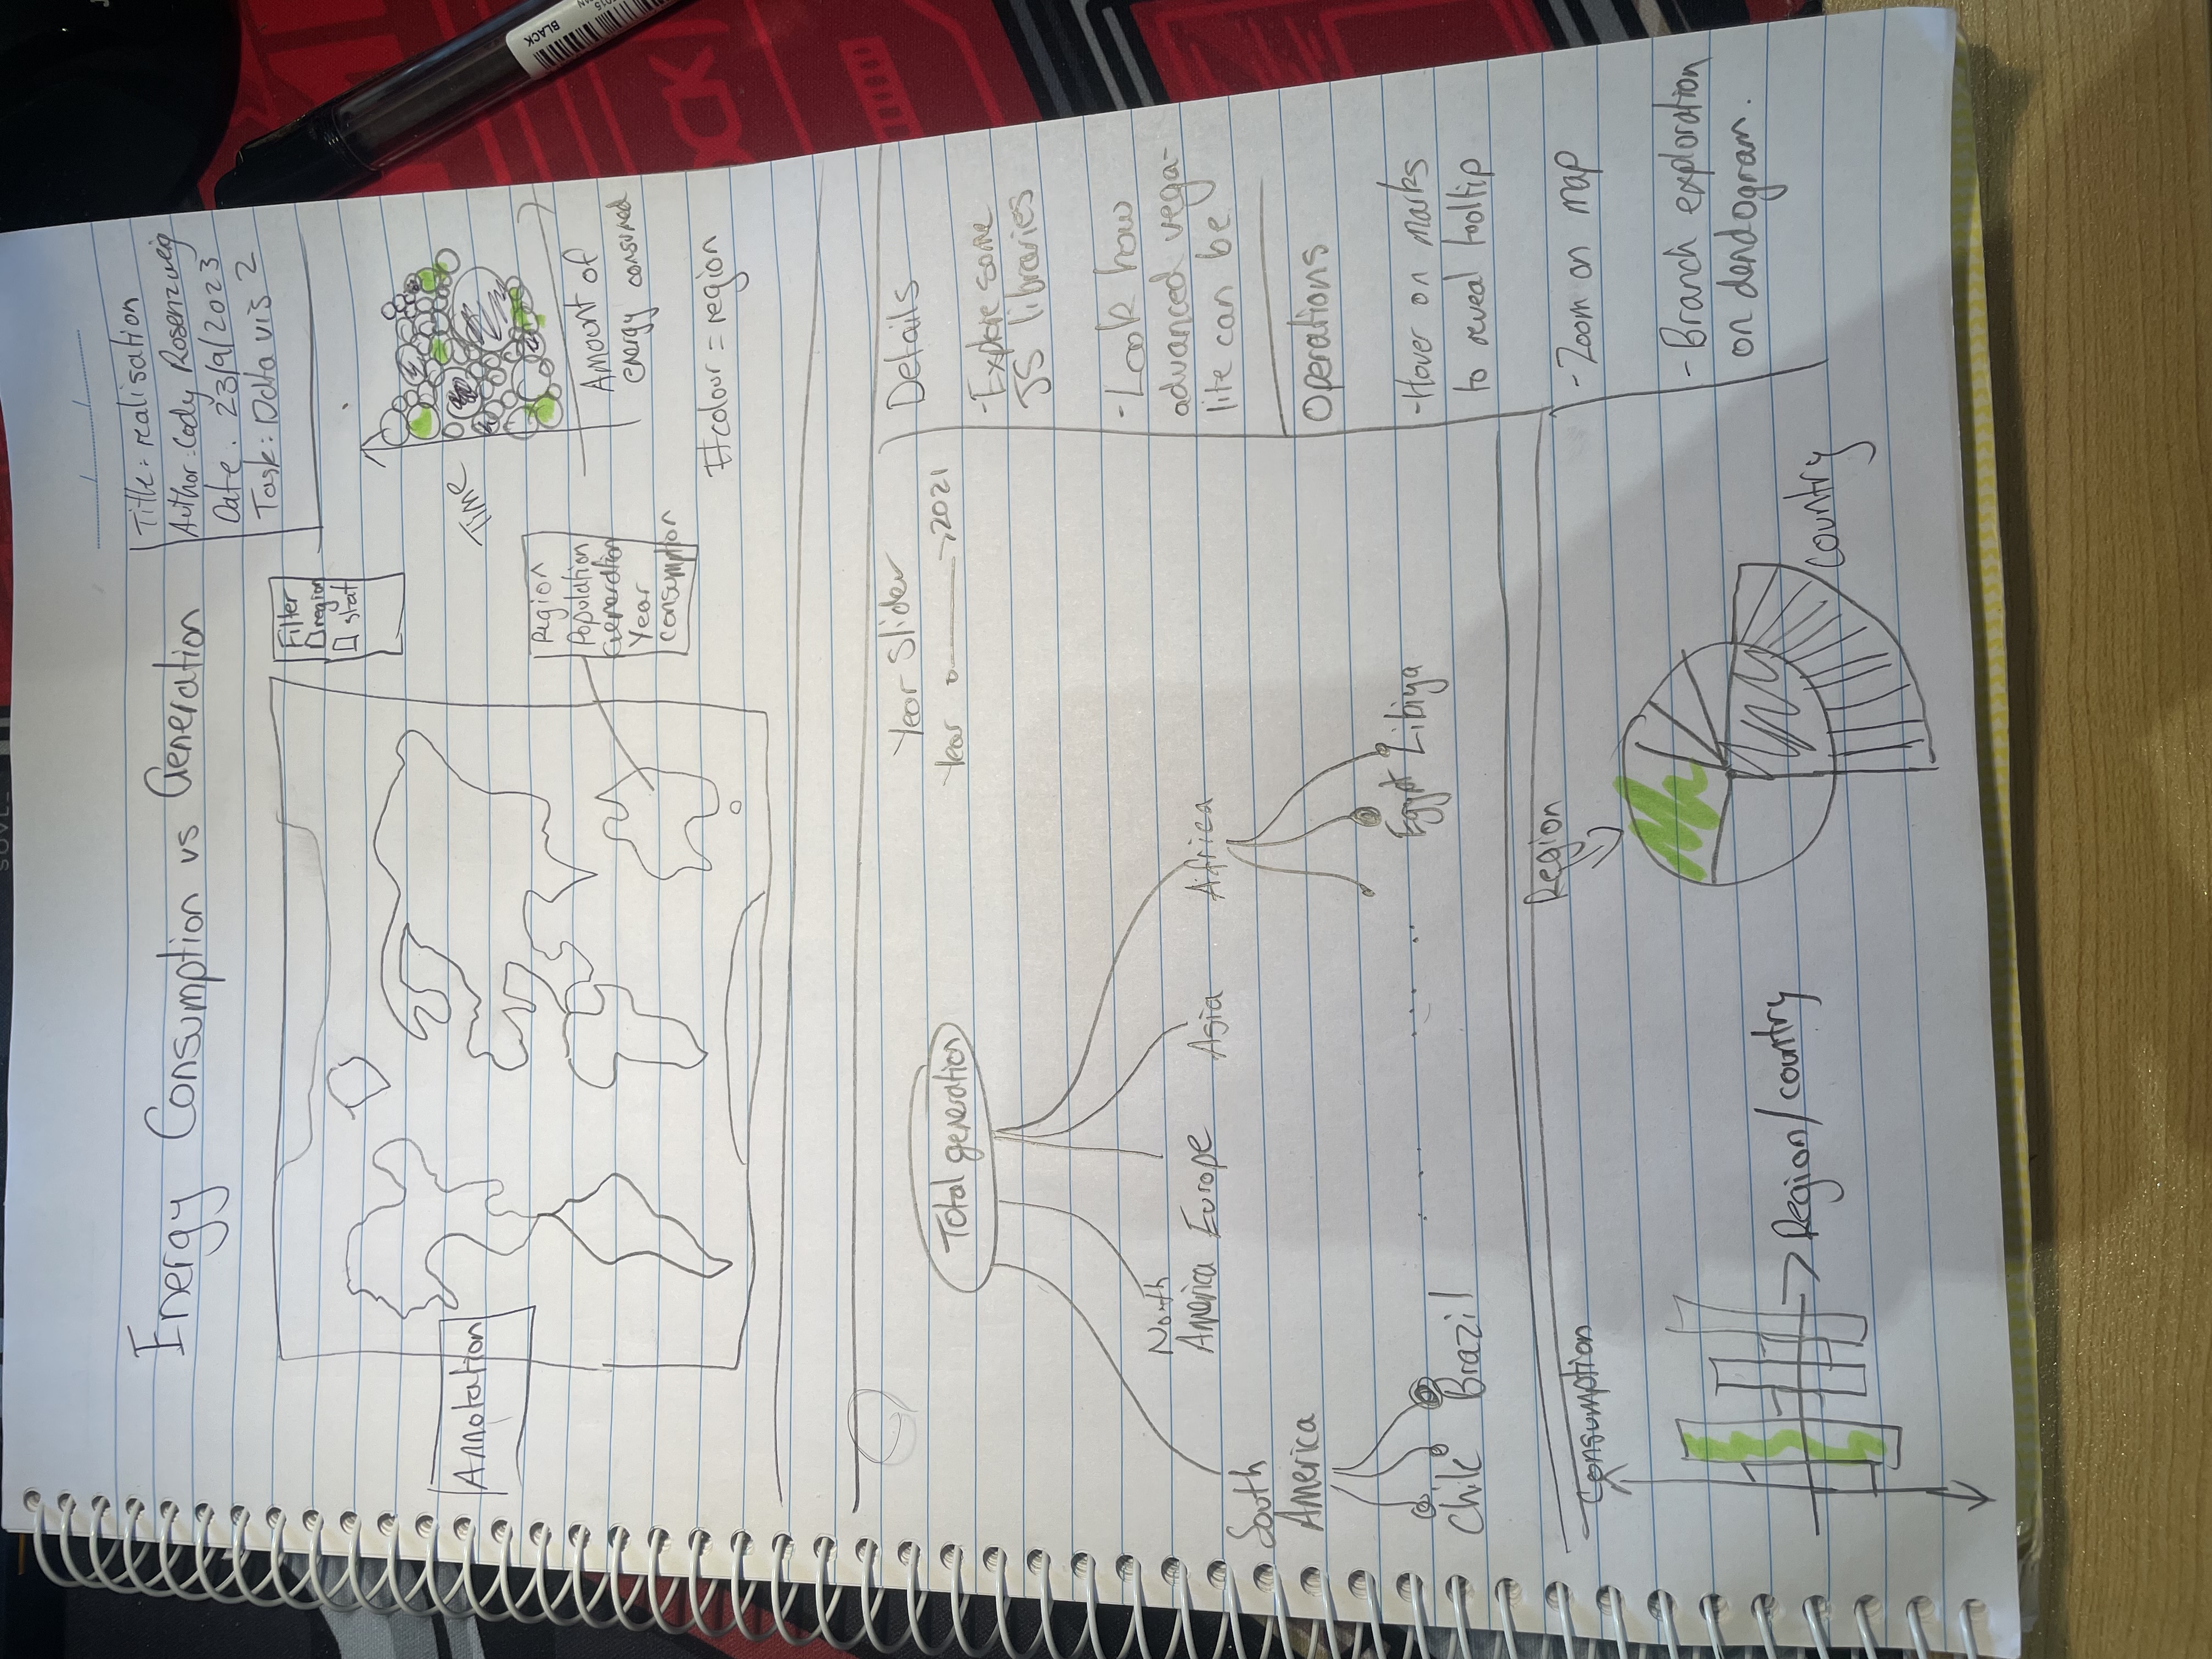 Energy Consumption vs Generation
Title: realisation
Author: Cody Rosenzweig
Date. 23/9/2023
Task: Data vis 2
Filter
region
stat
Annotation
Region
Population
Generation
Year
Consumption
Time
Amount of
energy consumed
#colour = region
Total generation
Year Slider
Year 2021
North
America Europe Asia Africa
South
America
Chile Brazil
Egypt Libiya
Details
-Explore some
JS libraries
-Look how
advanced vega-
lite can be
Operations
-Hover on marks
to reveal tooltip
-Zoom on map
-Branch exploration
on dendogram.
Consumption
Region/country
Region
Country
BLACK